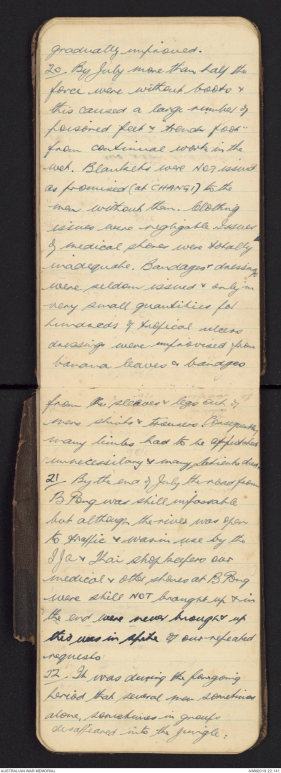 gradually improved.
20. By July more than half the
force were without boots &
this caused a large number of
poisoned feet & trench foot
from continual work in the
wet. Blankets were NOT issued
as promised (at CHANGI) to the
men without them. Clothing
issues were negligable issues
of medical stores were totally
inadequate. Bandages & dressings
were seldom issued & only in
very small quantities for
hundreds of tropical ulcers
dressings were improvised from
banana leaves & bandges
from the sleeves & legs cut of
mens shirts & trousers. Consequently
many limbs had to be amputated
unnecessilary & many patients died
21. By the end of July the road from
B Pong was still impassable
but although the river was open
to traffic & was in use by the
IJA & Thai shop keepers our
medical & other stores at B Pong
were still NOT brought up & in
the end were never brought up
this was in spite of our repeated
requests
22. It was during the foregoing
period that several men sometimes
alone, sometimes in groups
disappeared into the jungle;
AUSTRALIAN WAR MEMORIAL